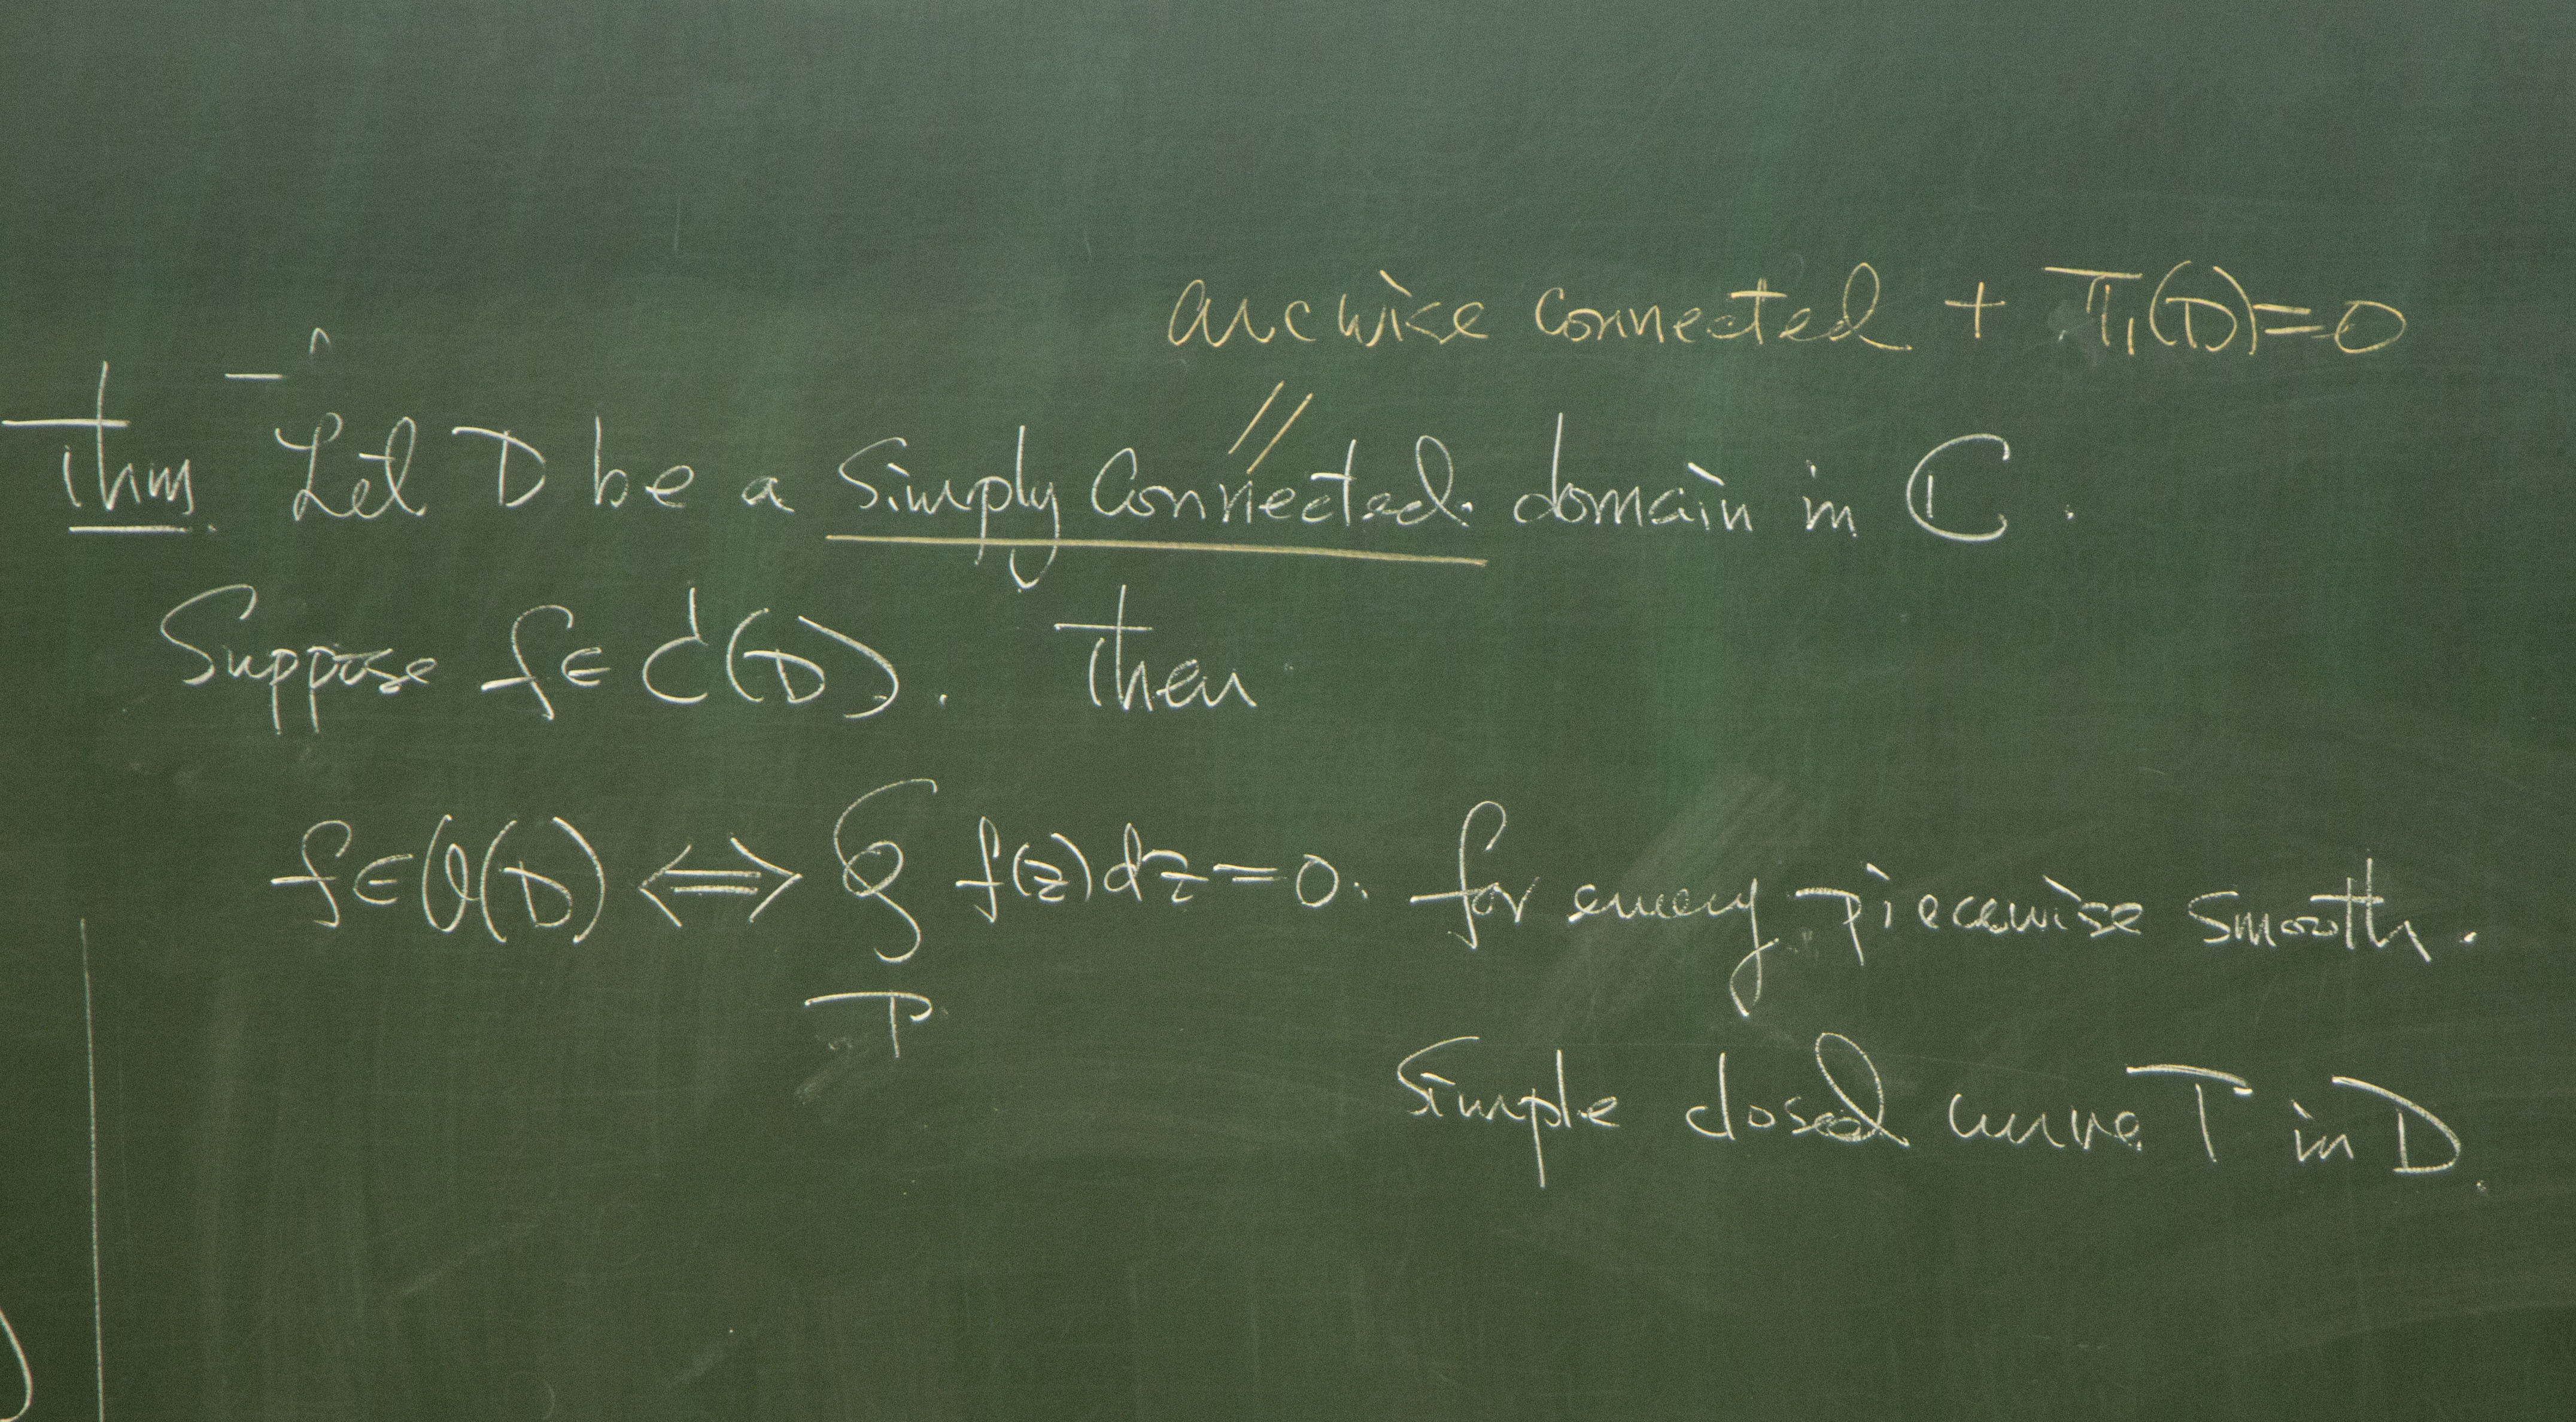 arcwise connected + π₁(D)=0
Thm. Let D be a simply connected domain in ℂ.
Suppose f∈C¹(D). Then
f∈O(D) ⟺ ∮_Γ f(z)dz=0. for every piecewise smooth.
simple closed curve Γ in D.